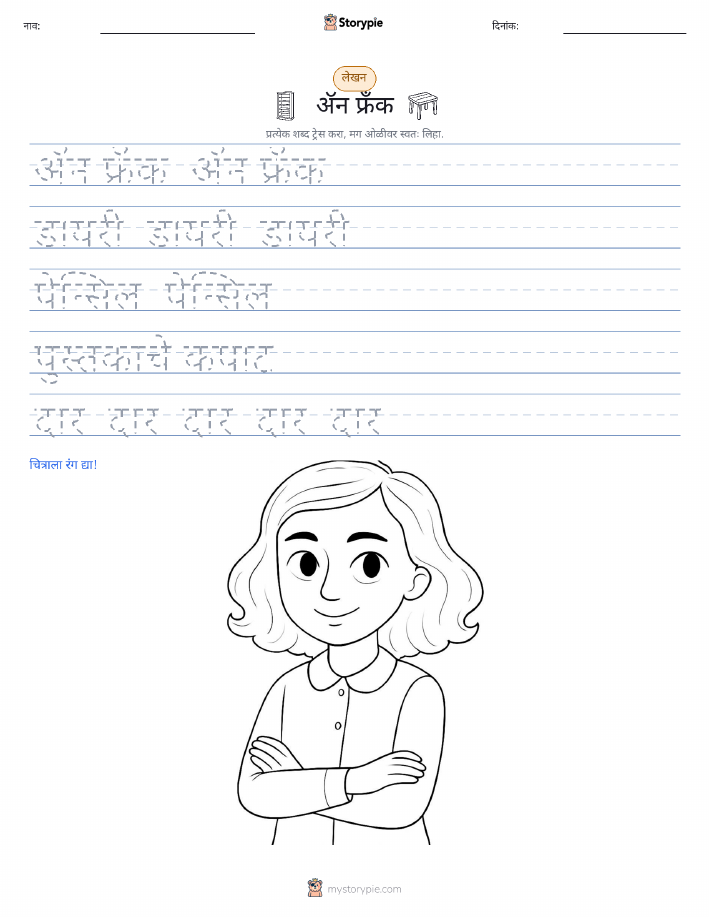 नाव: Storypie दिनांक:
लेखन
ॲन फ्रँक
प्रत्येक शब्द ट्रेस करा, मग ओळीवर स्वतः लिहा.
ॲन फ्रँक ॲन फ्रँक
डायरी डायरी डायरी
पेन्सिल पेन्सिल
पुस्तकाचे कपाट
दार दार दार दार दार
चित्राला रंग द्या!
mystorypie.com